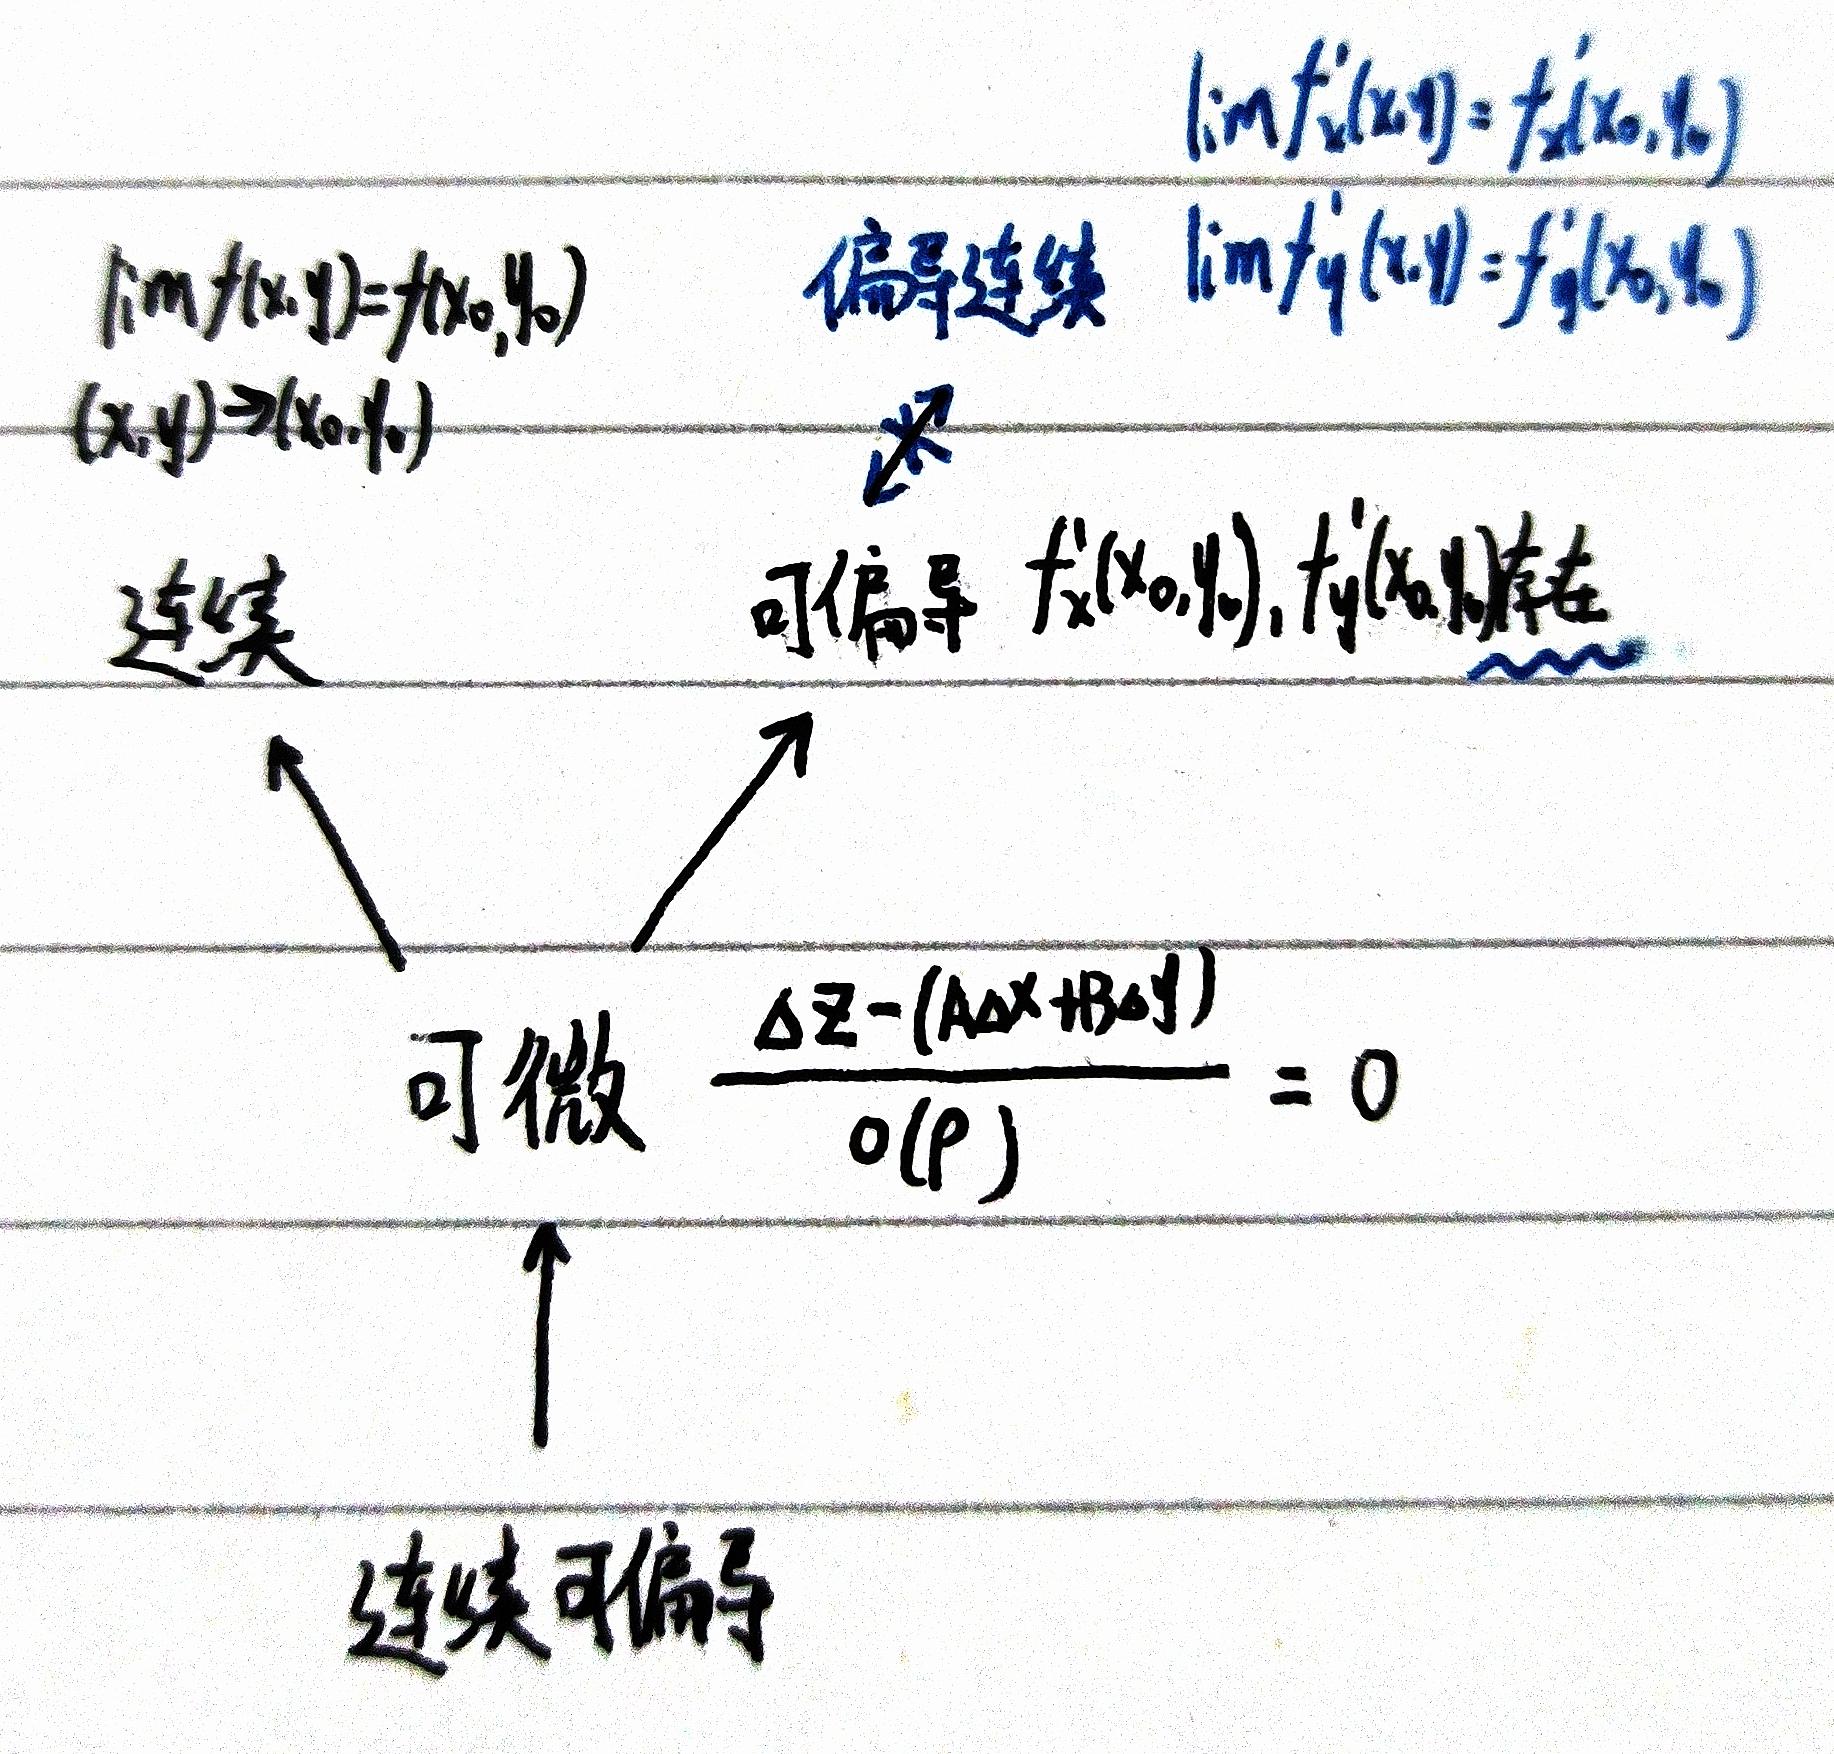 lim f'x(x,y)=f'x(x₀,y₀)
偏导连续 lim f'y(x,y)=f'y(x₀,y₀)
lim f(x,y)=f(x₀,y₀)
(x,y)→(x₀,y₀)
连续
可偏导 f'x(x₀,y₀), f'y(x₀,y₀)存在
可微 ΔZ-(AΔx+BΔy)/o(ρ) = 0
连续可偏导